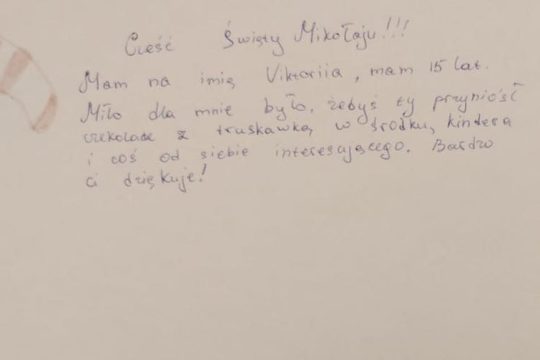 Cześć Święty Mikołaju!!!
Mam na imię Viktoriia, mam 15 lat.
Miło dla mnie było, żebyś ty przyniósł
czekolade z truskawką w środku, kindera
i coś od siebie interesującego. Bardzo
ci dziękuje!